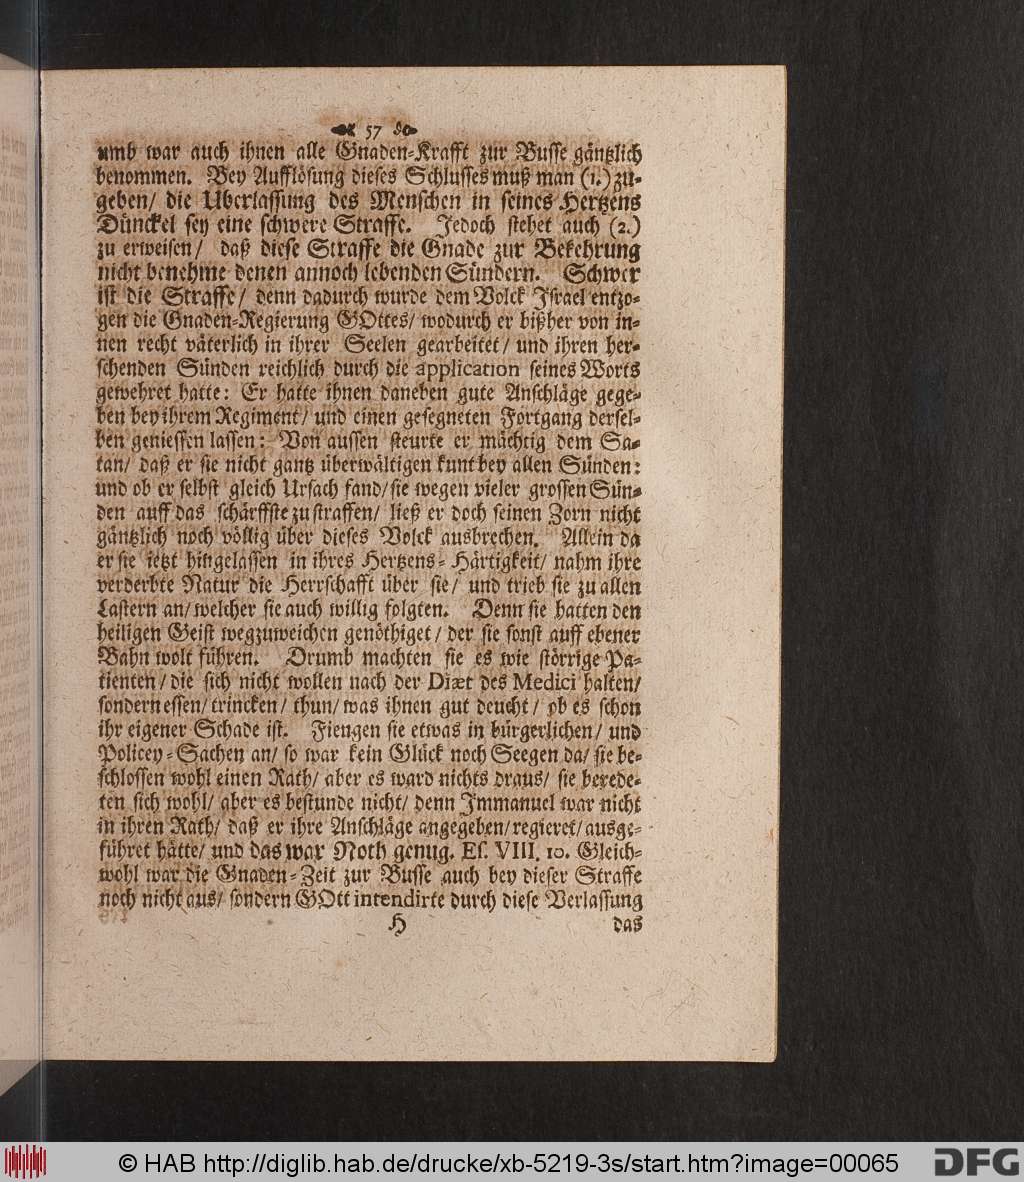 57
umb war auch ihnen alle Gnaden-Krafft zur Busse gäntzlich
benommen. Bey Aufflösung dieses Schlusses muß man (1.) zu-
geben/ die Uberlassung des Menschen in seines Hertzens
Dünckel sey eine schwere Straffe. Jedoch stehet auch (2.)
zu erweisen/ daß diese Straffe die Gnade zur Bekehrung
nicht benehme denen annoch lebenden Sündern. Schwer
ist die Straffe/ denn dadurch wurde dem Volck Israel entzo-
gen die Gnaden-Regierung GOttes/ wodurch er bißher von in-
nen recht väterlich in ihrer Seelen gearbeitet/ und ihren her-
schenden Sünden reichlich durch die application seines Worts
gewehret hatte: Er hatte ihnen daneben gute Anschläge gege-
ben bey ihrem Regiment/ und einen gesegneten Fortgang dersel-
ben geniessen lassen: Von aussen steurte er mächtig dem Sa-
tan/ daß er sie nicht gantz überwältigen kunt bey allen Sünden:
und ob er selbst gleich Ursach fand/ sie wegen vieler grossen Sün-
den auff das schärffste zu straffen/ ließ er doch seinen Zorn nicht
gäntzlich noch völlig über dieses Volck ausbrechen. Allein da
er sie ietzt hingelassen in ihres Hertzens-Härtigkeit/ nahm ihre
verderbte Natur die Herrschafft über sie/ und trieb sie zu allen
Lastern an/ welcher sie auch willig folgten. Denn sie hatten den
heiligen Geist wegzuweichen genöthiget/ der sie sonst auff ebener
Bahn wolt führen. Drumb machten sie es wie störrige Pa-
tienten/ die sich nicht wollen nach der Diæt des Medici halten/
sondern essen/ trincken/ thun/ was ihnen gut deucht/ ob es schon
ihr eigener Schade ist. Fiengen sie etwas in bürgerlichen/ und
Policey-Sachen an/ so war kein Glück noch Seegen da/ sie be-
schlossen wohl einen Rath/ aber es ward nichts draus/ sie berede-
ten sich wohl/ aber es bestunde nicht/ denn Immanuel war nicht
in ihren Rath/ daß er ihre Anschläge angegeben/ regieret/ ausge-
führet hätte/ und das war Noth genug. Es. VIII. 10. Gleich-
wohl war die Gnaden-Zeit zur Busse auch bey dieser Straffe
noch nicht aus/ sondern GOtt intendirte durch diese Verlassung
H das
© HAB http://diglib.hab.de/drucke/xb-5219-3s/start.htm?image=00065 DFG